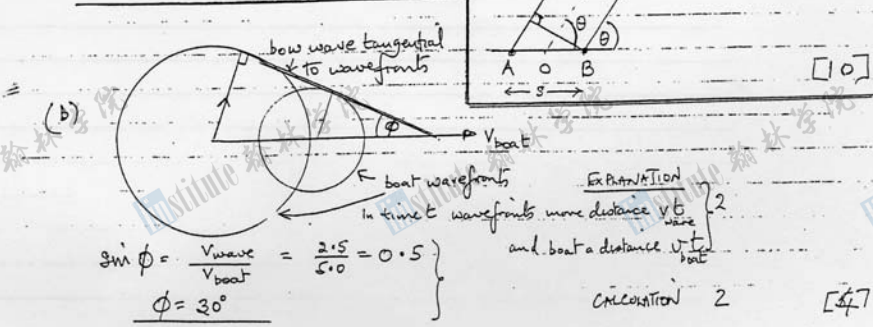 θ θ
A O B
← s →
[10]
(b)
bow wave tangential
to wavefronts
φ
V boat
boat wavefronts
EXPLANATION
in time t wavefronts move distance v wave t } 2
and boat a distance v boat t
sin φ = V wave / V boat = 2.5 / 5.0 = 0.5
φ = 30°
CALCULATION 2
翰林学院
Institute 翰林学院
Institute 翰林学院